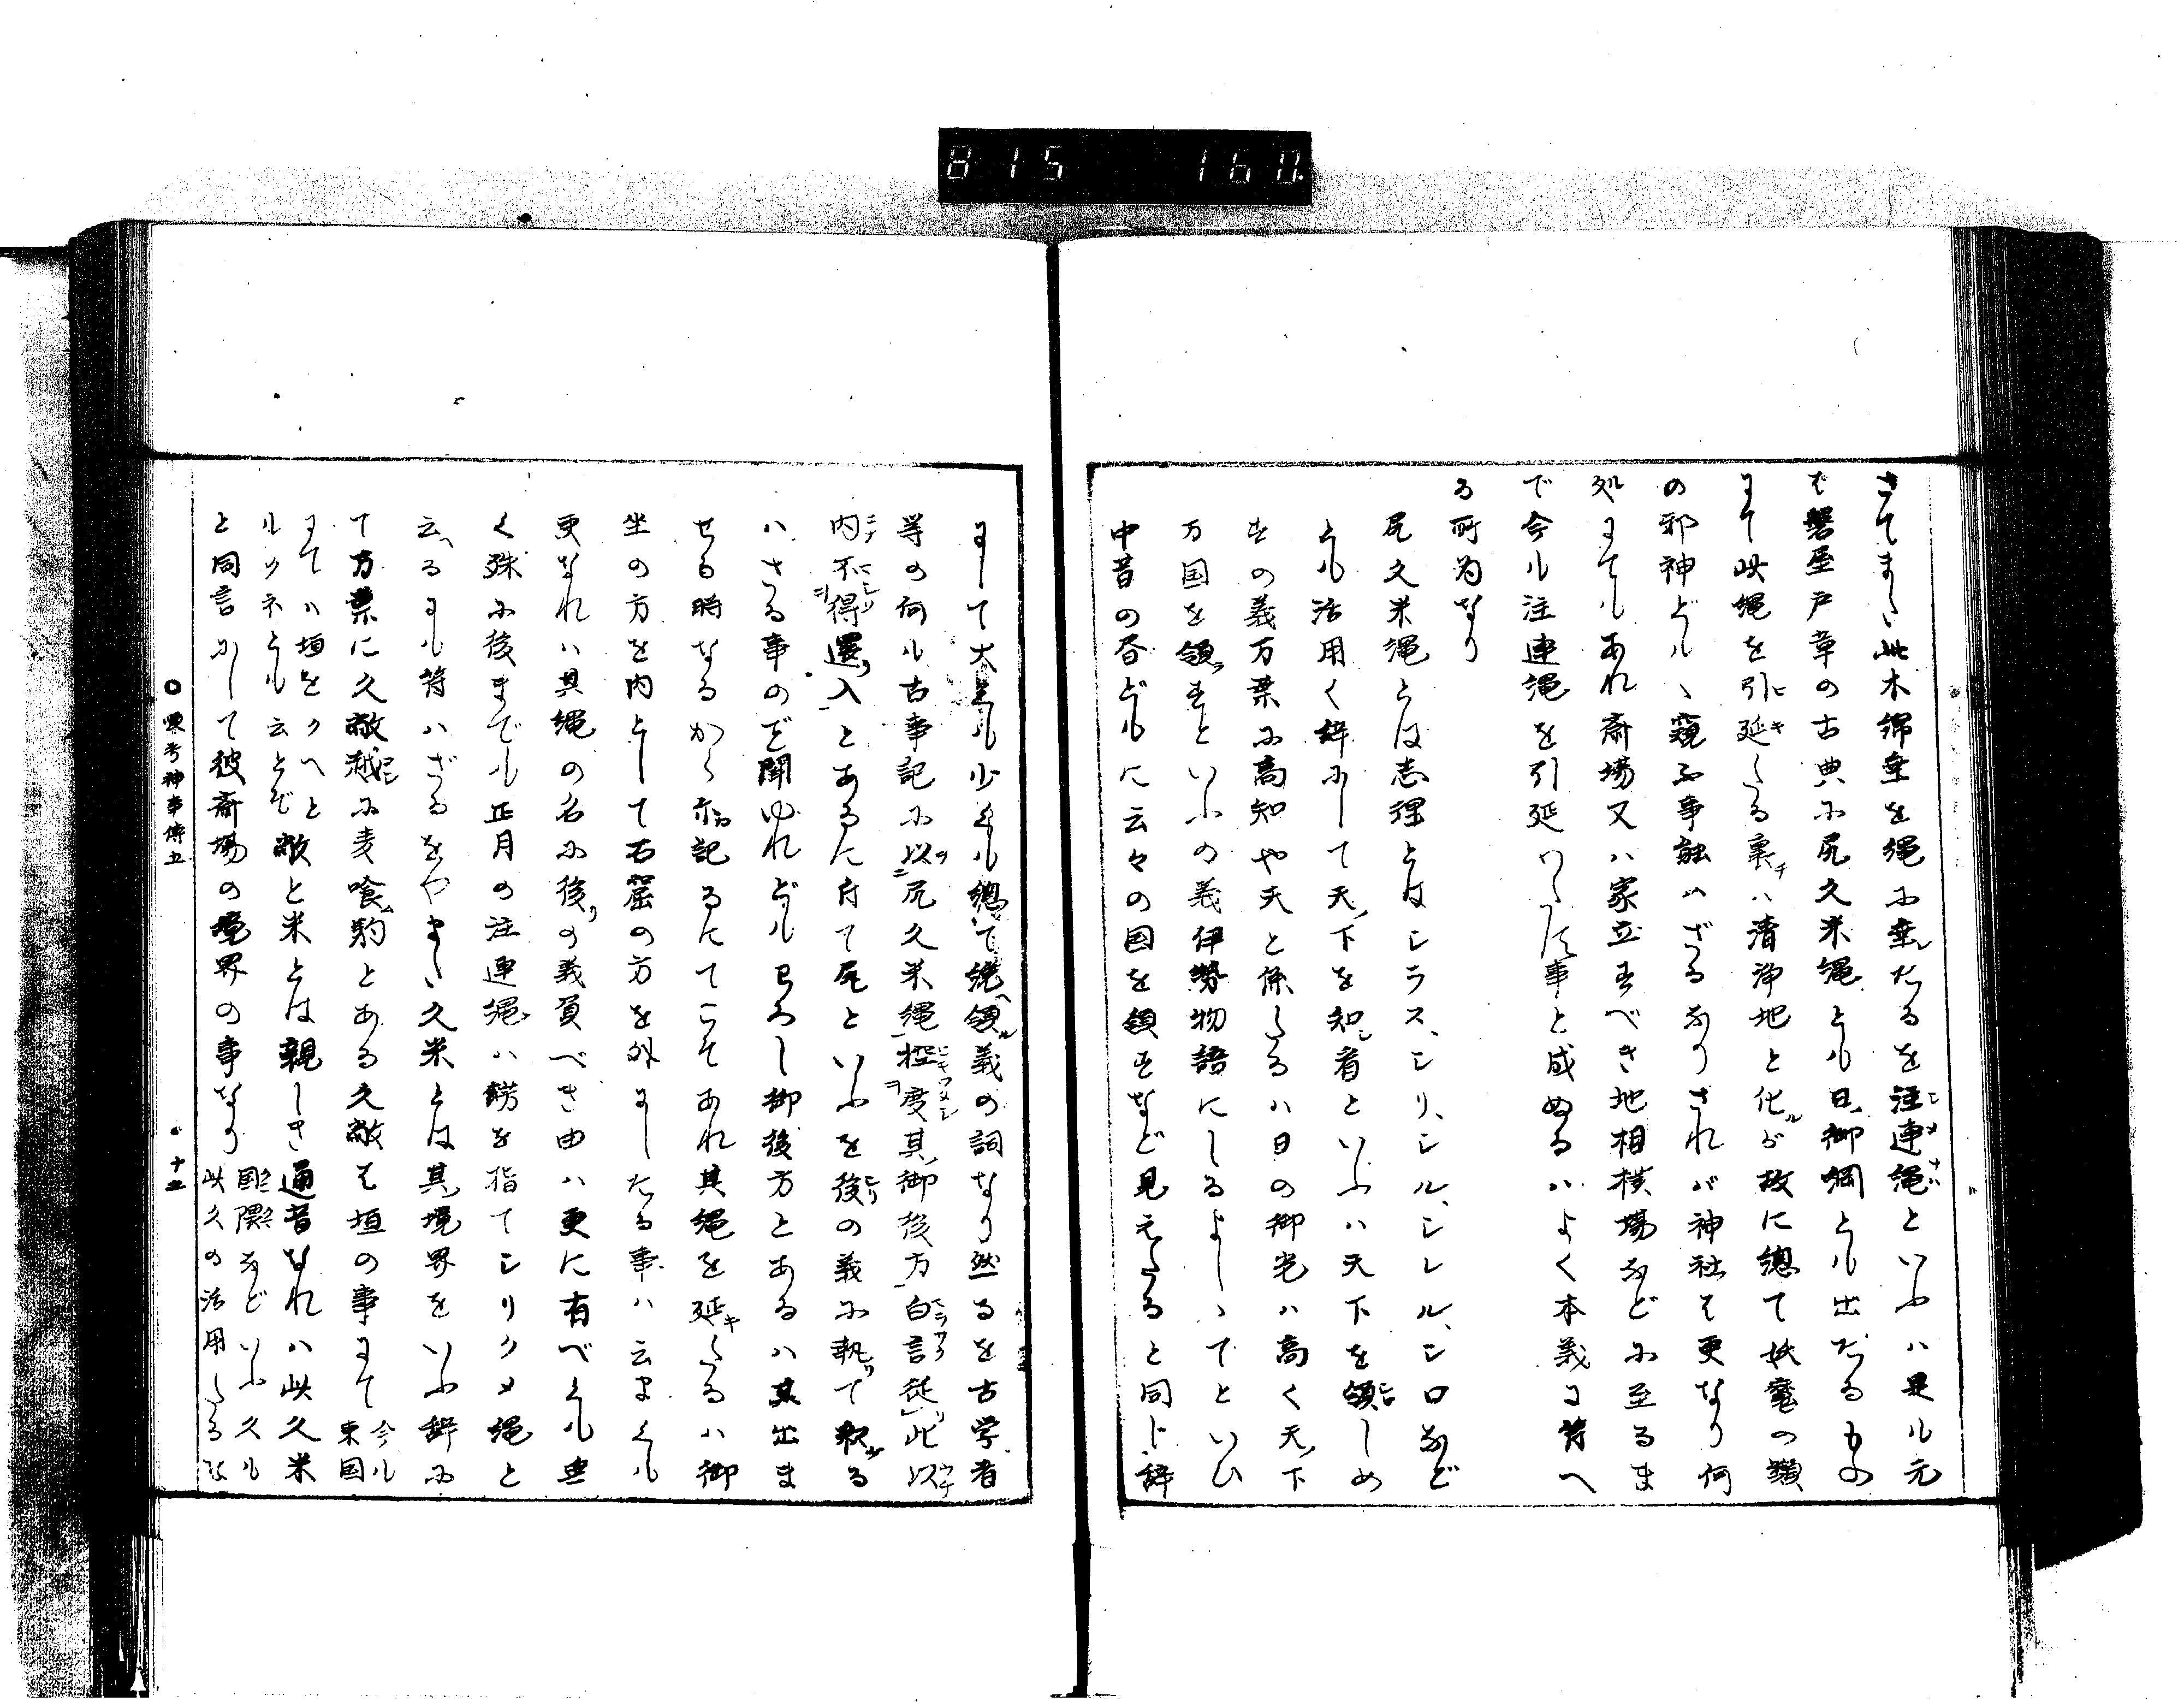 815 160
さてまた此木綿垂を縄に垂たるを注連縄といふハ是ル元
を磐屋戸章の古典に尻久米縄とも日御綱とも出たるもの
にて此縄を引延たる裏ハ清浄地と化るが故に総て妖鬼の類
の邪神どもゝ窺ふ事能ハざるなりされバ神社を更なり何
処にてもあれ斎場又ハ家立すべき地相撲場などに至るま
で今も注連縄を引延わたす事と成ぬるハよく本義に符へ
る所為なり
尻久米縄とは志理とはシラス、シリ、シル、シレル、シロなど
とも活用く辞にして天下を知看といふハ天下を領しめ
すの義万葉に高知や天と係たるハ日の御光ハ高く天下
万国を領すといふの義伊勢物語にしるよしゝてといひ
中昔の書どもに云々の国を領すなど見えたると同ト辞
にして大きも少きも総て統領義の詞なり然るを古学者
等の何も古事記に以尻久米縄控度其御後方白言従此以
内不得還入とあるに付て尻といふを後の義に執て釈る
ハさる事のごと聞ゆれどもわろし御後方とあるハ其出ま
せる時なるから亦記るにてこそあれ其縄を延たるハ御
坐の方を内として石窟の方を外にしたる事ハ云まくも
更なれハ其縄の名に後の義負べき由ハ更に有べくも無
く殊に後までも正月の注連縄ハ鐇を指てシリクメ縄と
云るにも符ハざるをやまた久米とは其境界をいふ辞に
て万葉に久敝越に麦喰駒とある久敝は垣の事にて今も東国
にてハ垣をクヘと
ルクネとも云とぞ敝と米とは親しき通音なれハ此久米
と同言にして彼斎場の境界の事なり 圀隈などいふ久も此久の活用たるな
○宗考神事傳五 ・十五